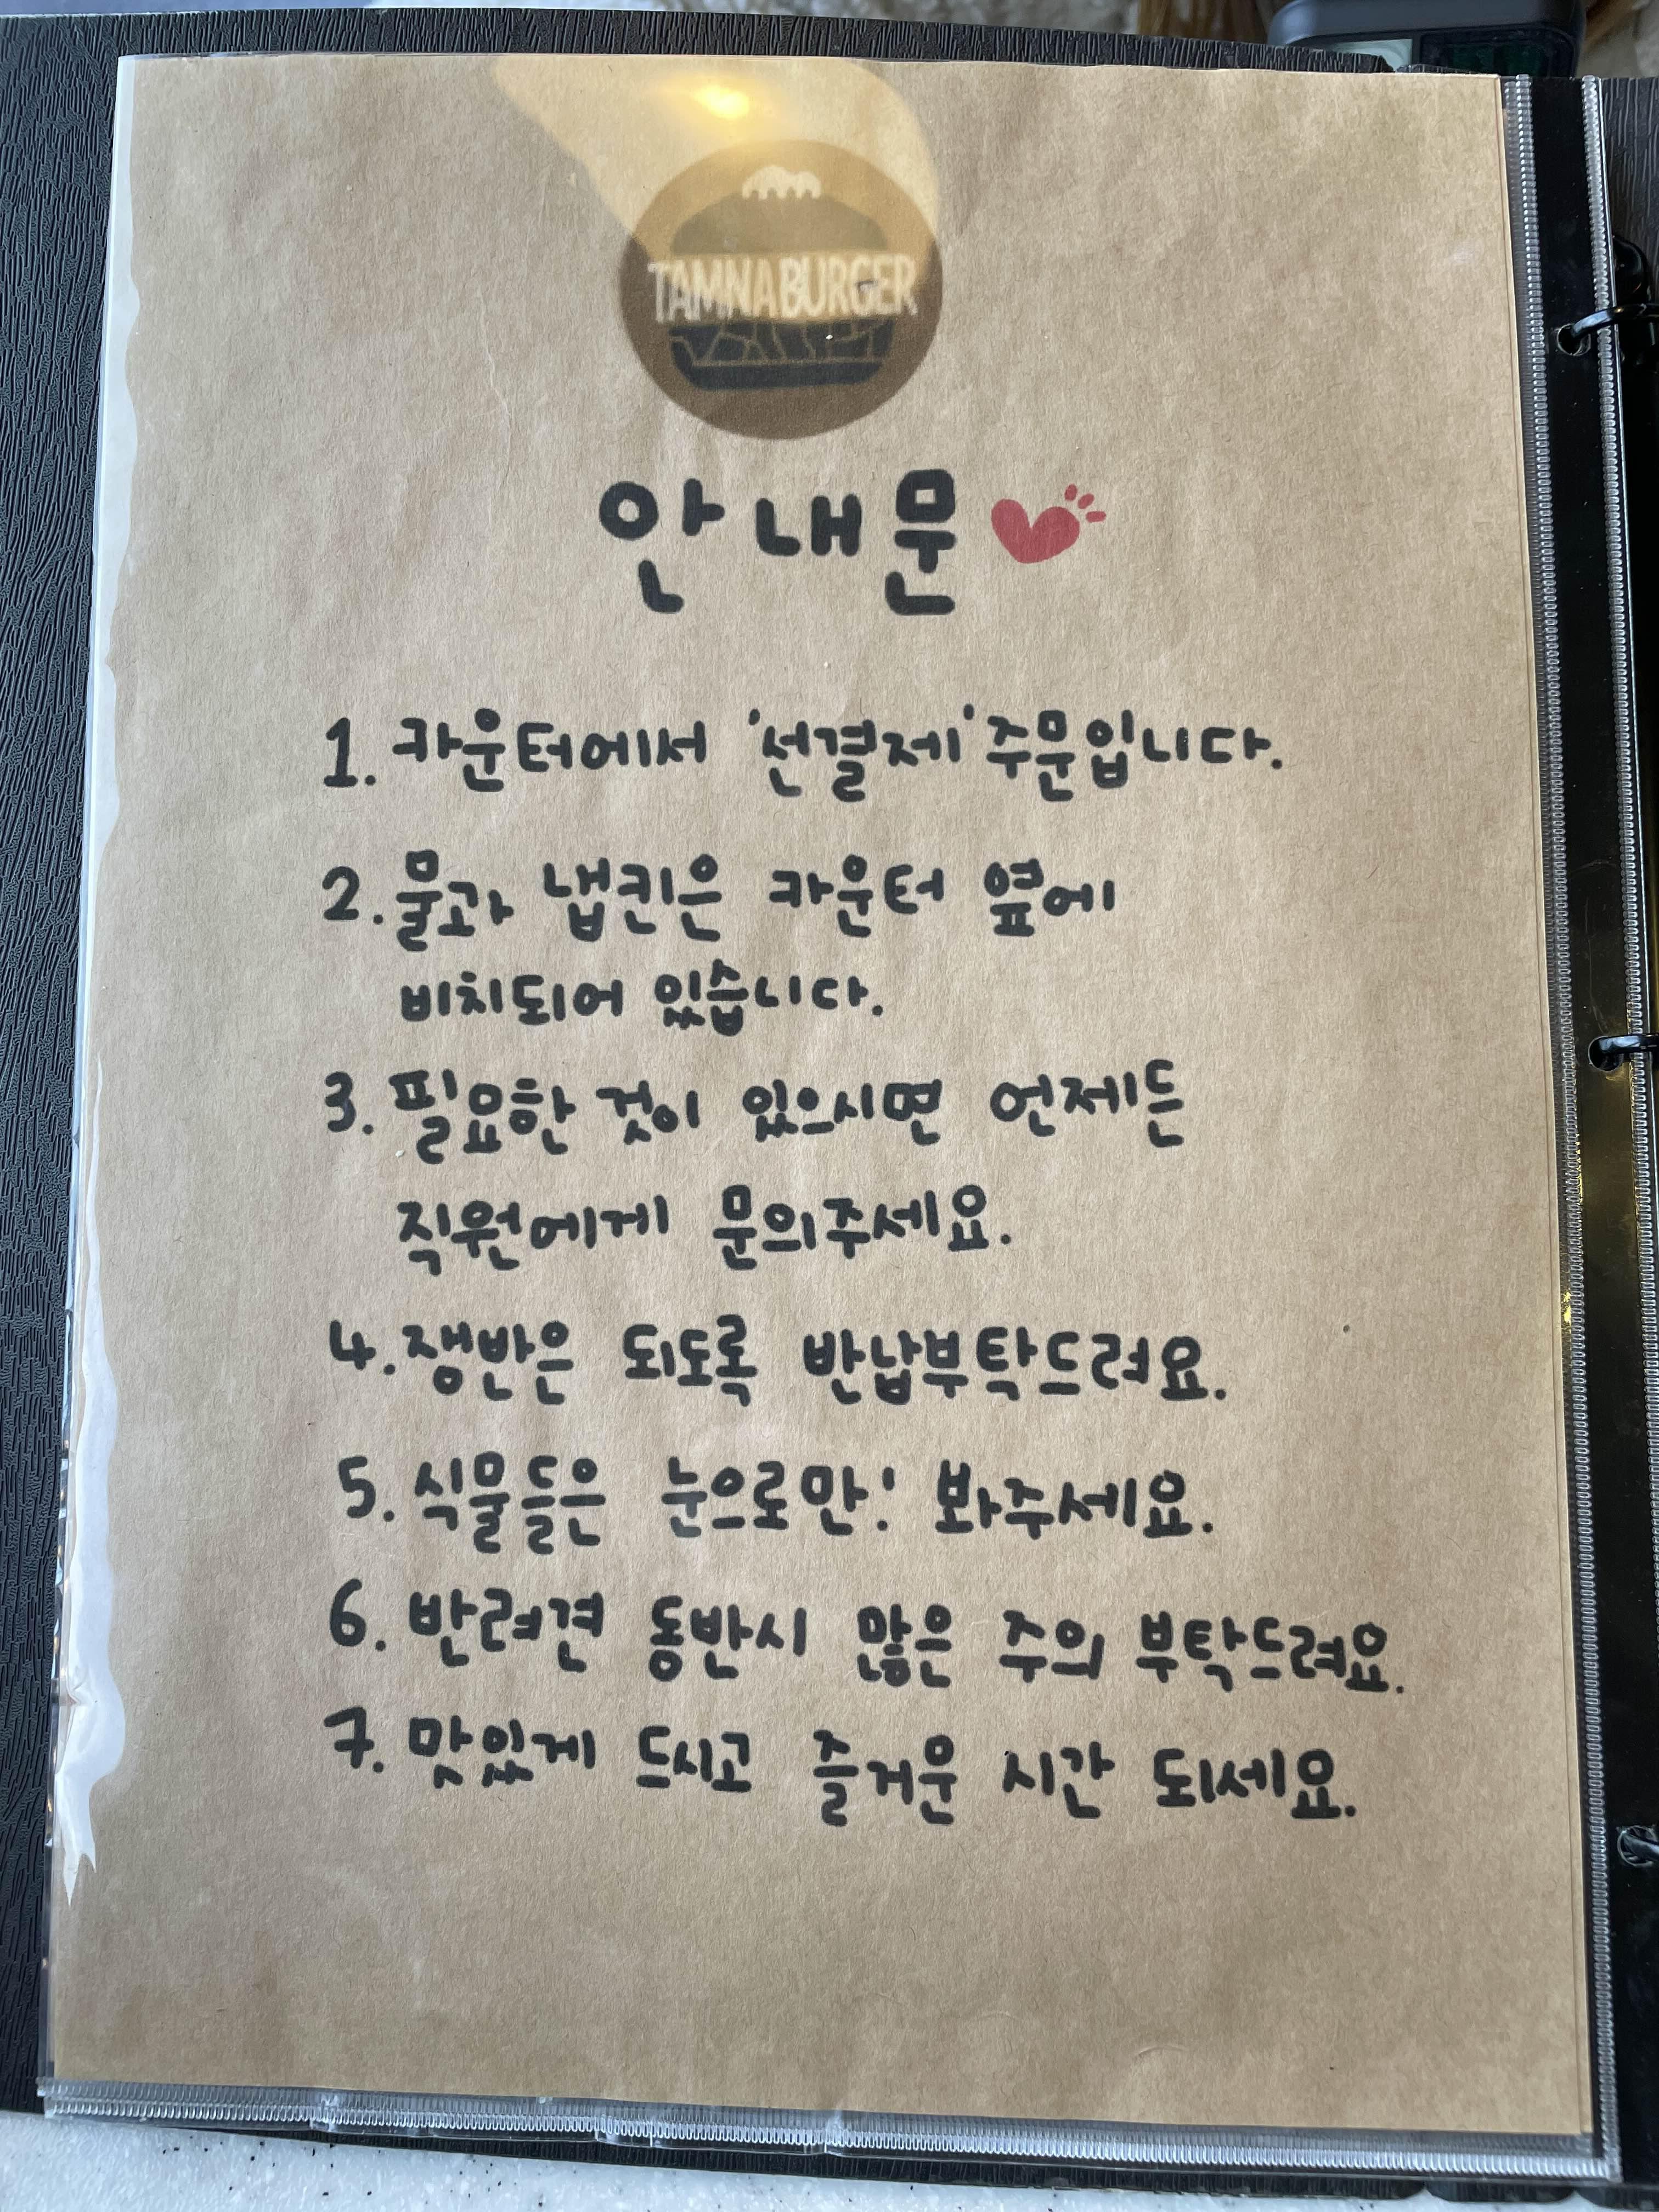 TAMNA BURGER
안내문
1. 카운터에서 '선결제' 주문입니다.
2. 물과 냅킨은 카운터 옆에
비치되어 있습니다.
3. 필요한 것이 있으시면 언제든
직원에게 문의주세요.
4. 쟁반은 되도록 반납부탁드려요.
5. 식물들은 눈으로만! 봐주세요.
6. 반려견 동반시 많은 주의 부탁드려요.
7. 맛있게 드시고 즐거운 시간 되세요.